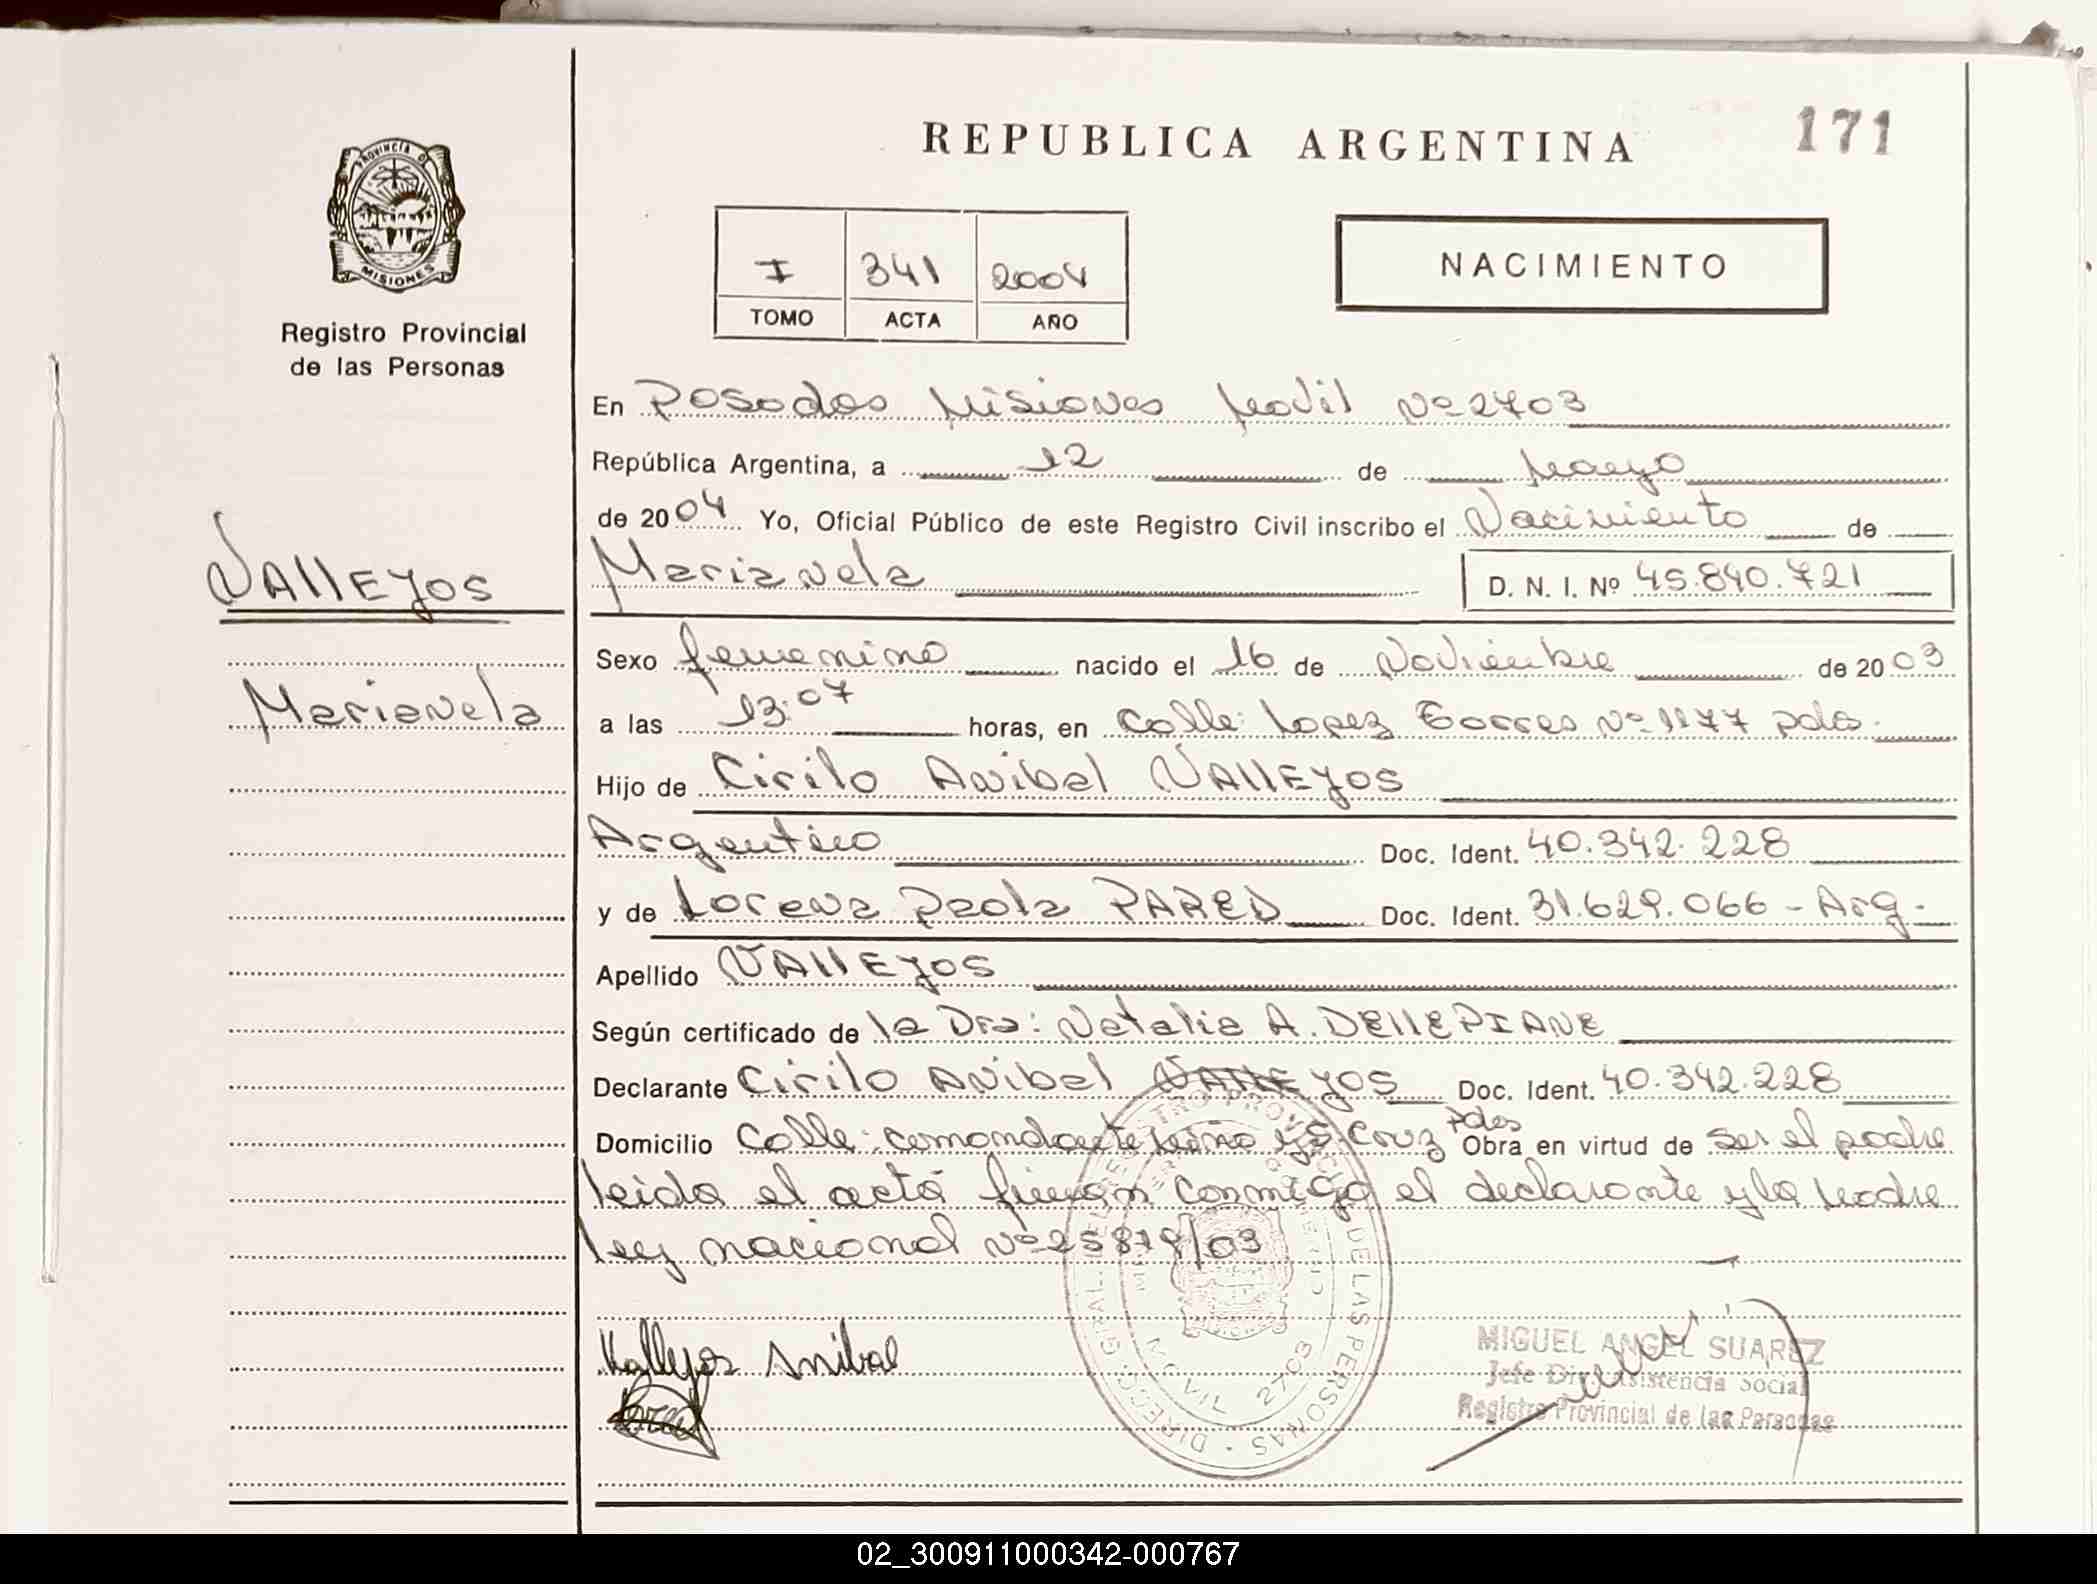 REPUBLICA ARGENTINA
171
PROVINCIA DE
MISIONES
Registro Provincial
de las Personas
I 341 2004
TOMO ACTA AÑO
NACIMIENTO
En Posadas Misiones Movil Nº 2703
República Argentina, a 12 de Mayo
de 2004 Yo, Oficial Público de este Registro Civil inscribo el Nacimiento de
VALLEJOS
Marianela
Marianela D. N. I. Nº 45.840.721
Sexo femenino nacido el 16 de Noviembre de 2003
a las 13:07 horas, en Calle: Lopez Torres Nº 1177 pdas.
Hijo de Cirilo Anibal VALLEJOS
Argentino Doc. Ident. 40.342.228
y de Lorena Paola PARED Doc. Ident. 31.629.066 - Arg.
Apellido VALLEJOS
Según certificado de la Dra: Natalia A. DELLEPIANE
Declarante Cirilo Anibal VALLEJOS Doc. Ident. 40.342.228
Domicilio Calle: comandante y S. Cruz Pdas Obra en virtud de ser el padre
leida el acta firman conmigo el declarante y la madre
ley nacional Nº 25819/03
Vallejos Anibal
MOVIL 2703
MIGUEL ANGEL SUAREZ
Jefe Div. Asistencia Social
Registro Provincial de las Personas
02_300911000342-000767